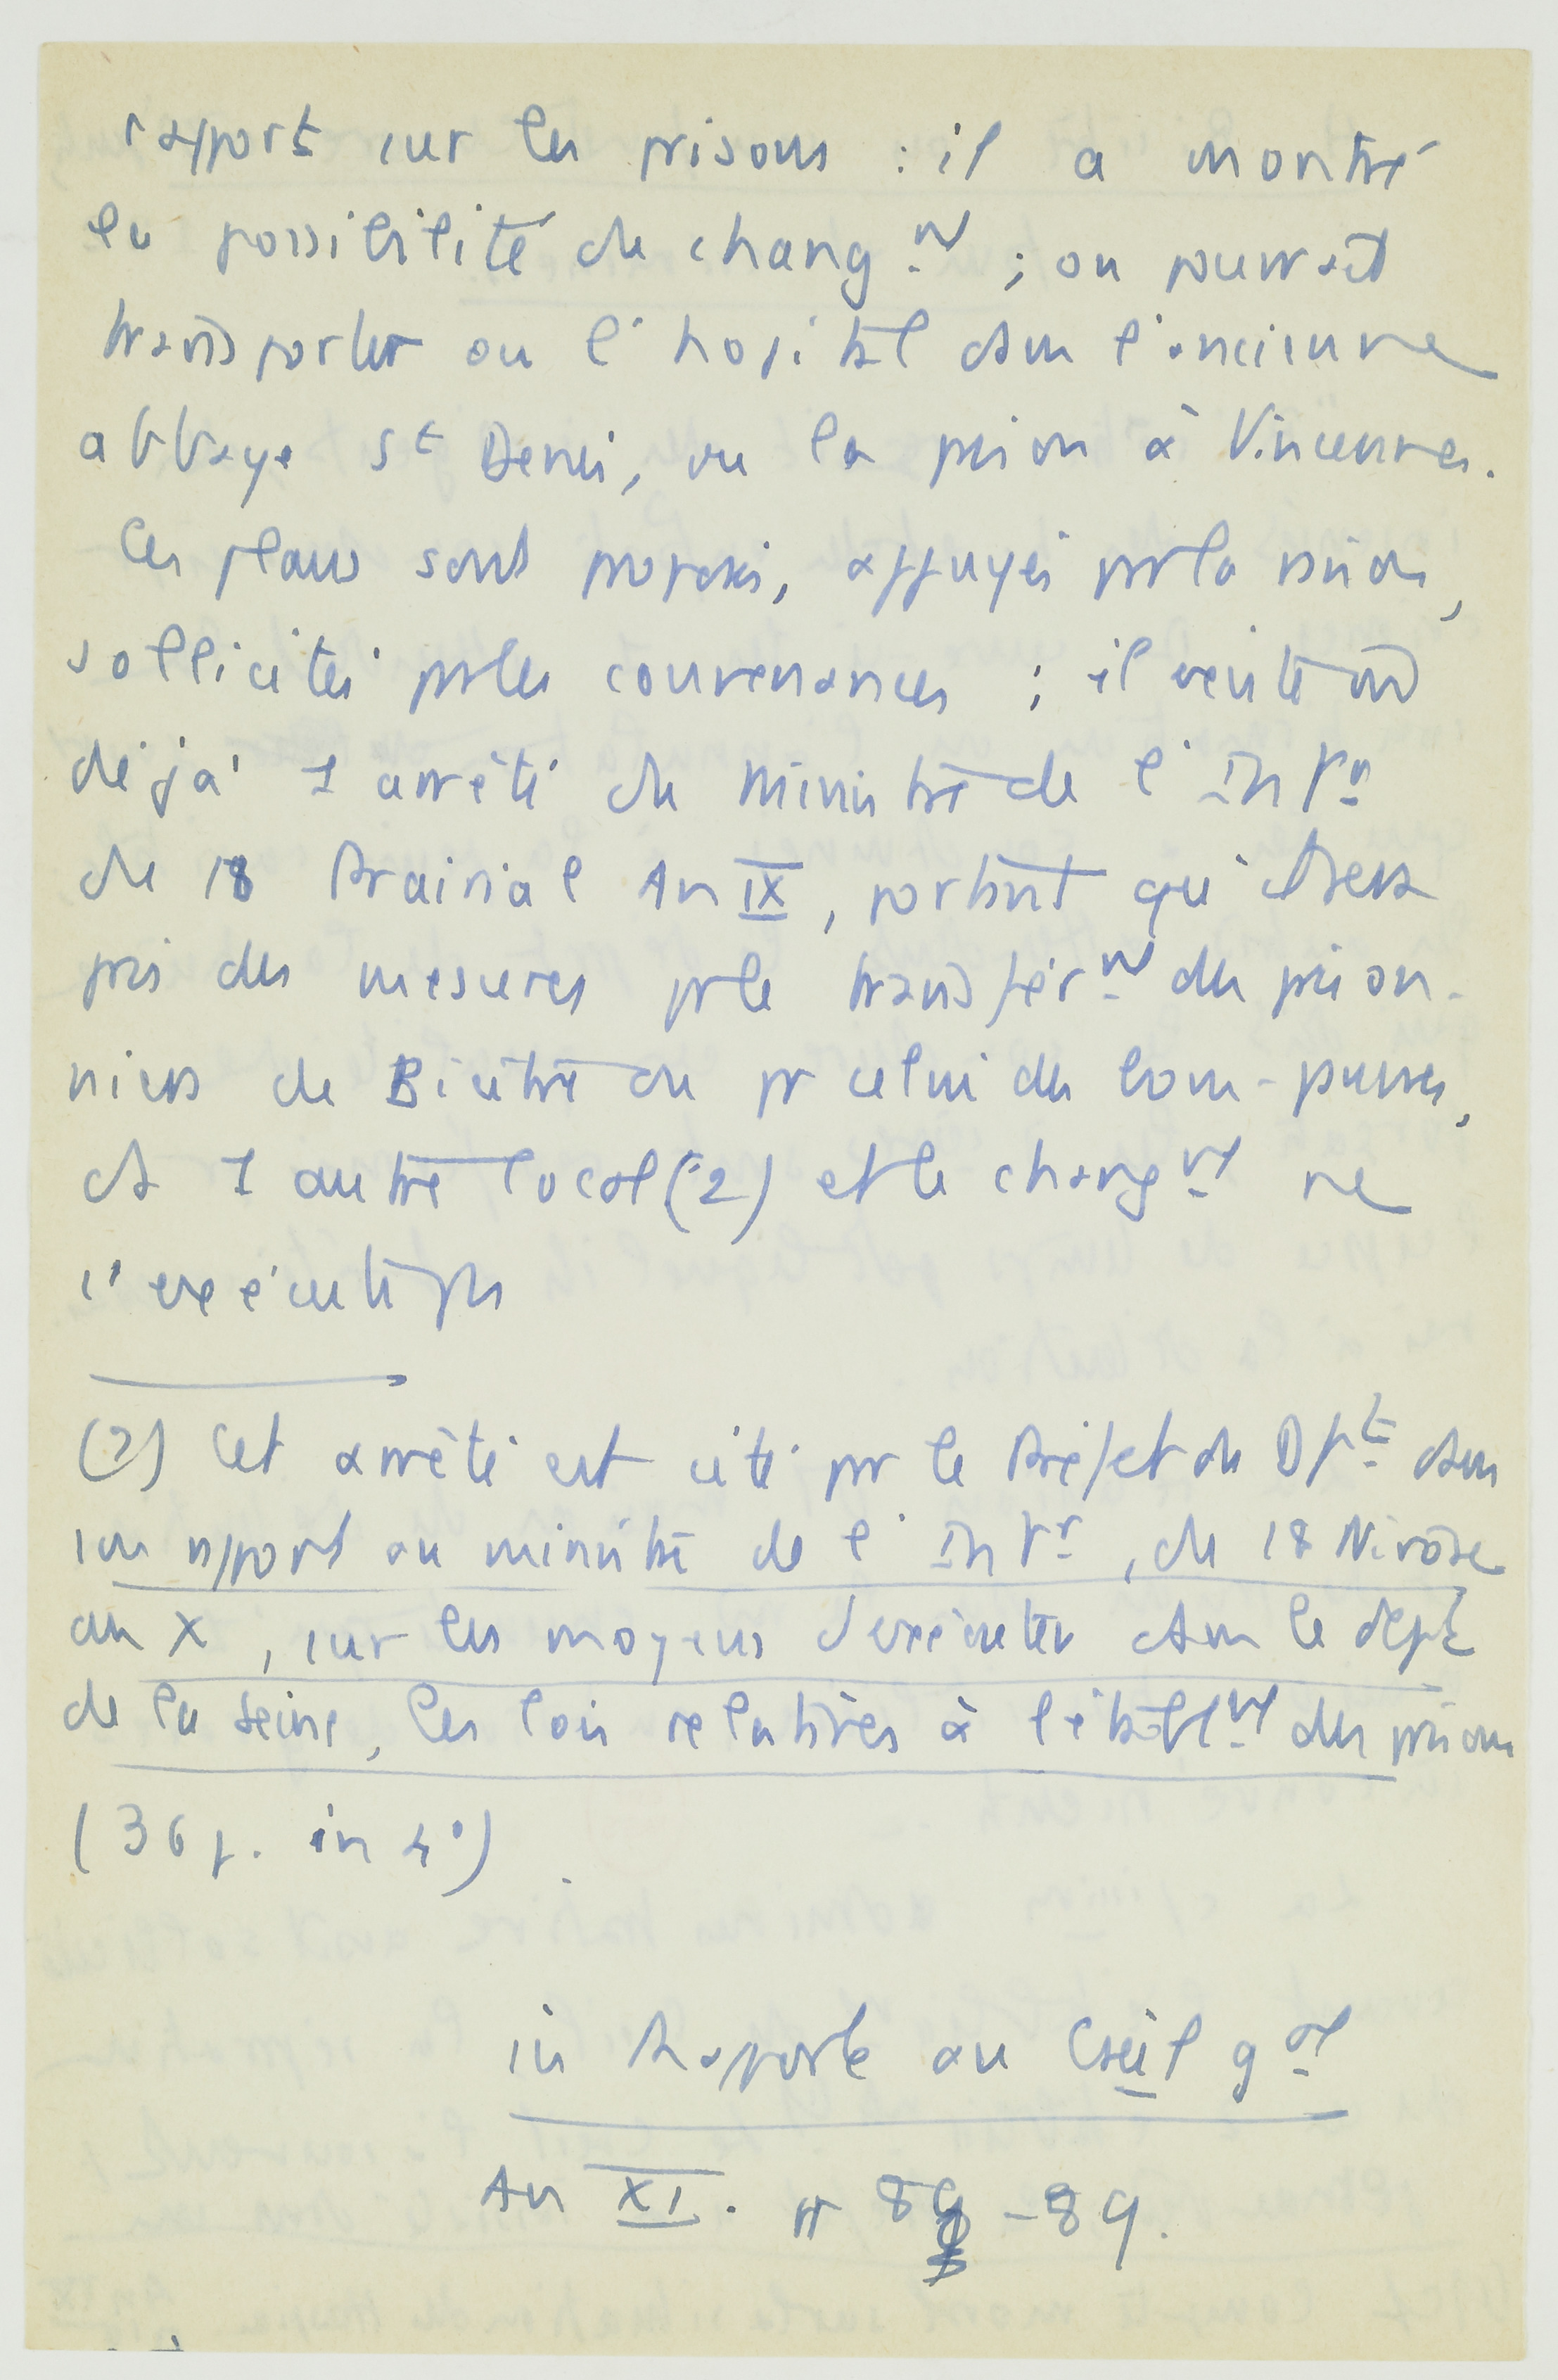 rapport sur les prisons : il a montré
la possibilité du changnt ; on pourrait
transporter ou l'hopital dans l'ancienne
abbaye St Denis, ou la prison à Vincennes.
Ces plans sont proposés, appuyés pr la raison,
sollicités pr les convenances ; il existe
déjà 1 arrêté du Ministre de l'Intr
du 18 Prairial An IX, portant qu'il sera
pris des mesures pr le transférnt des prison-
niers de Bicêtre ou pr celui des bons-pauvres,
ds 1 autre local (2) et le changnt ne
s'exécute pas
(2) Cet arrêté est cité pr le Préfet du Dpt dans
son rapport au ministre de l'Intr, du 18 Nivôse
an X, sur les moyens d'exécuter dans le dépt
de la Seine, les lois relatives à l'établnt des prisons
(36 p. in 4°).
in Rapports au Cseil gal
An XI. pp 88-89.